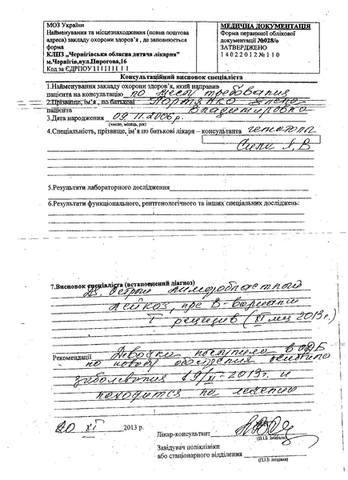 МОЗ України
Найменування та місцезнаходження (повна поштова
адреса) закладу охорони здоров'я, де заповнюється
форма
КЛПЗ „Чернігівська обласна дитяча лікарня"
м.Чернігів,вул.Пирогова,16
Код за ЄДРПОУ 1 1 1 1 1 1 1 1
МЕДИЧНА ДОКУМЕНТАЦІЯ
Форма первинної облікової
документації №028/о
ЗАТВЕРДЖЕНО
1 4 0 2 2 0 1 2 № 1 1 0
Консультаційний висновок спеціаліста
1.Найменування закладу охорони здоров'я, який направив
пацієнта на консультацію по месту требования
2.Прізвище, ім'я, по батькові
пацієнта Владимировна
3.Дата народження 09.11.2006г.
(число, місяць, рік)
4.Спеціальність, прізвище, ім'я по батькові лікаря – консультанта гематолог
5.Результати лабораторного дослідження
6.Результати функціонального, рентгенологічного та інших спеціальних досліджень:
7.Висновок спеціаліста (встановлений діагноз)
Ds. Острый лимфобластный
лейкоз, пре В-вариант
I рецидив ( 2013г.)
Рекомендації Девочка поступила в ОДБ
по поводу обострения
заболевания 19/XI-2013г. и
находится на лечении
20 XI 2013 р.
Лікар-консультант
(П.І.Б. підпис)
Завідувач поліклініки
або стаціонарного відділення
(П.І.Б. підпис)